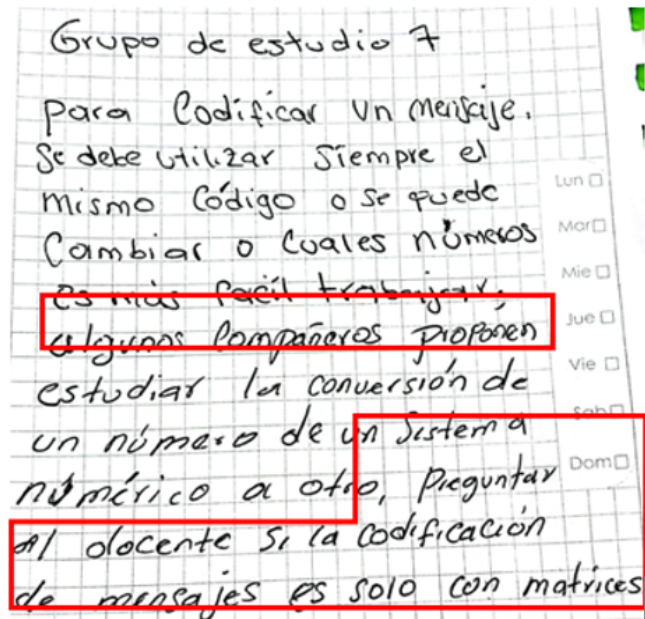 Grupo de estudio 7
para Codificar un mensaje.
Se debe utilizar siempre el
mismo Código o se puede
Cambiar o cuales números
es más facil trabajar,
algunos Compañeros proponen
estudiar la conversión de
un número de un Sistema
númérico a otro, Preguntar
Al docente si la codificación
de mensajes es solo con matrices
Lun
Mar
Mie
Jue
Vie
Sab
Dom